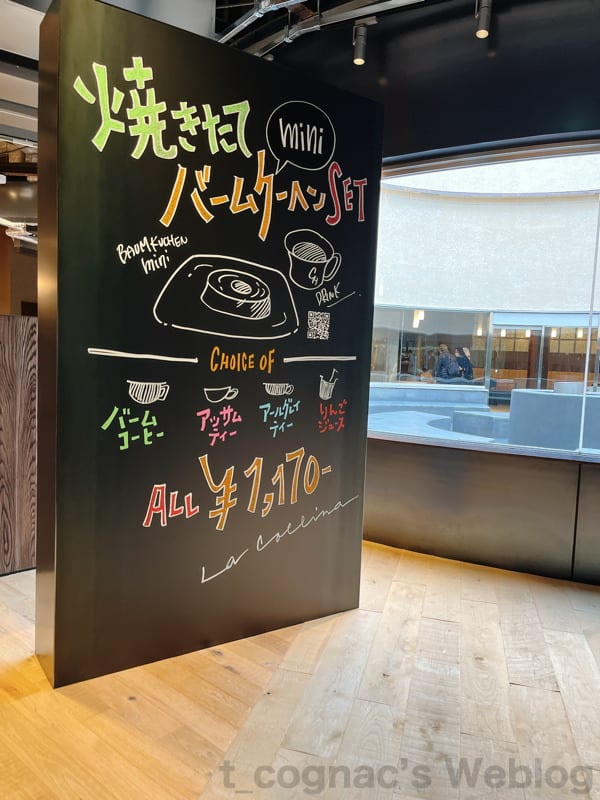 焼きたて
mini
バームクーヘンSET
BAUMKUCHEN
mini
DRINK
CHOICE OF
バーム
コーヒー
アッサム
ティー
アールグレイ
ティー
りんご
ジュース
ALL ¥1,170-
La Collina
t_cognac's Weblog